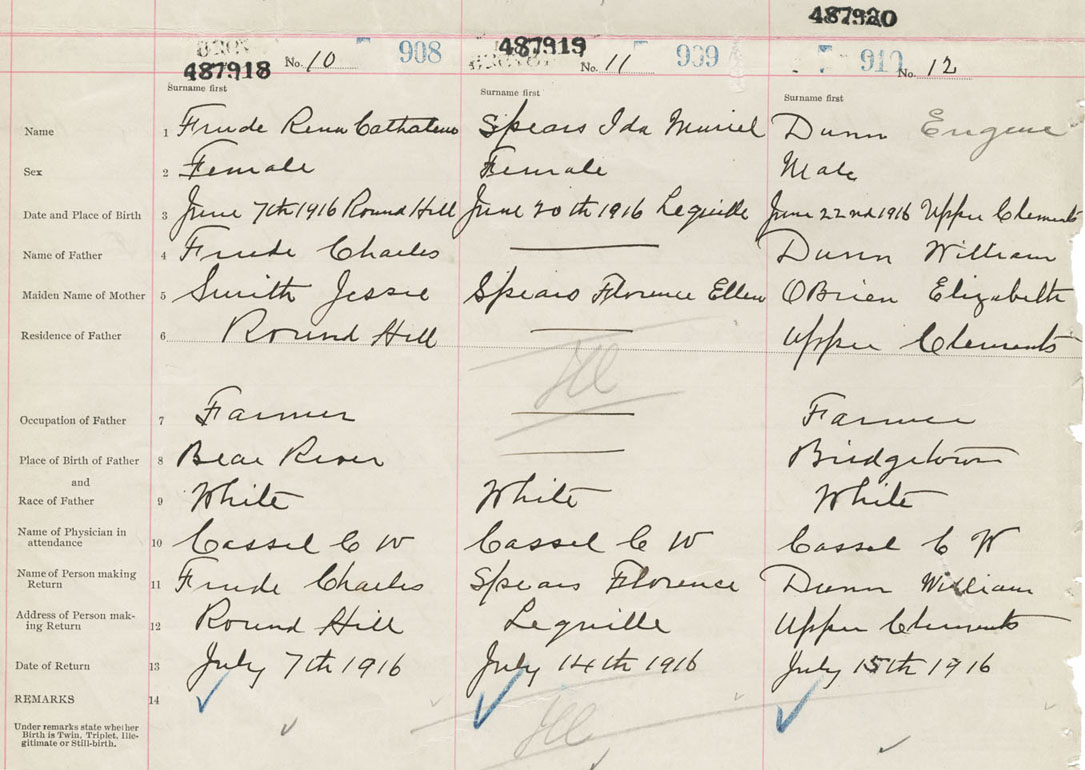 487920
487918 No. 10 908 487919 No. 11 909 910 No. 12
Surname first Surname first Surname first
Name 1 Frude Rena Spears Ida Muriel Dunn Eugene
Sex 2 Female Female Male
Date and Place of Birth 3 June 7th 1916 Round Hill June 20th 1916 Lequille June 22nd 1916 Upper Clements
Name of Father 4 Frude Charles Dunn William
Maiden Name of Mother 5 Smith Jessie Spears Florence Ellen OBrien Elizabeth
Residence of Father 6 Round Hill Upper Clements
Ill
Occupation of Father 7 Farmer Farmer
Place of Birth of Father 8 Bear River Bridgetown
and
Race of Father 9 White White White
Name of Physician in
attendance 10 Cassel C W Cassel C W Cassel C W
Name of Person making
Return 11 Frude Charles Spears Florence Dunn William
Address of Person mak-
ing Return 12 Round Hill Lequille Upper Clements
Date of Return 13 July 7th 1916 July 14th 1916 July 15th 1916
REMARKS 14
Ill
Under remarks state whether
Birth is Twin, Triplet, Ille-
gitimate or Still-birth.